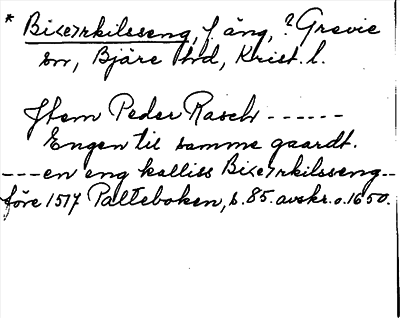 * Bi<e>rkilsseng, f. äng, ? Grevie
sn, Bjäre hd, Krist. l.
Jtem Peder Rasch ------
Engen til samme gaardt.
---en eng kalliss Bi<e>rkilsseng--
före 1517 Palteboken, s. 85. avskr. o. 1650.